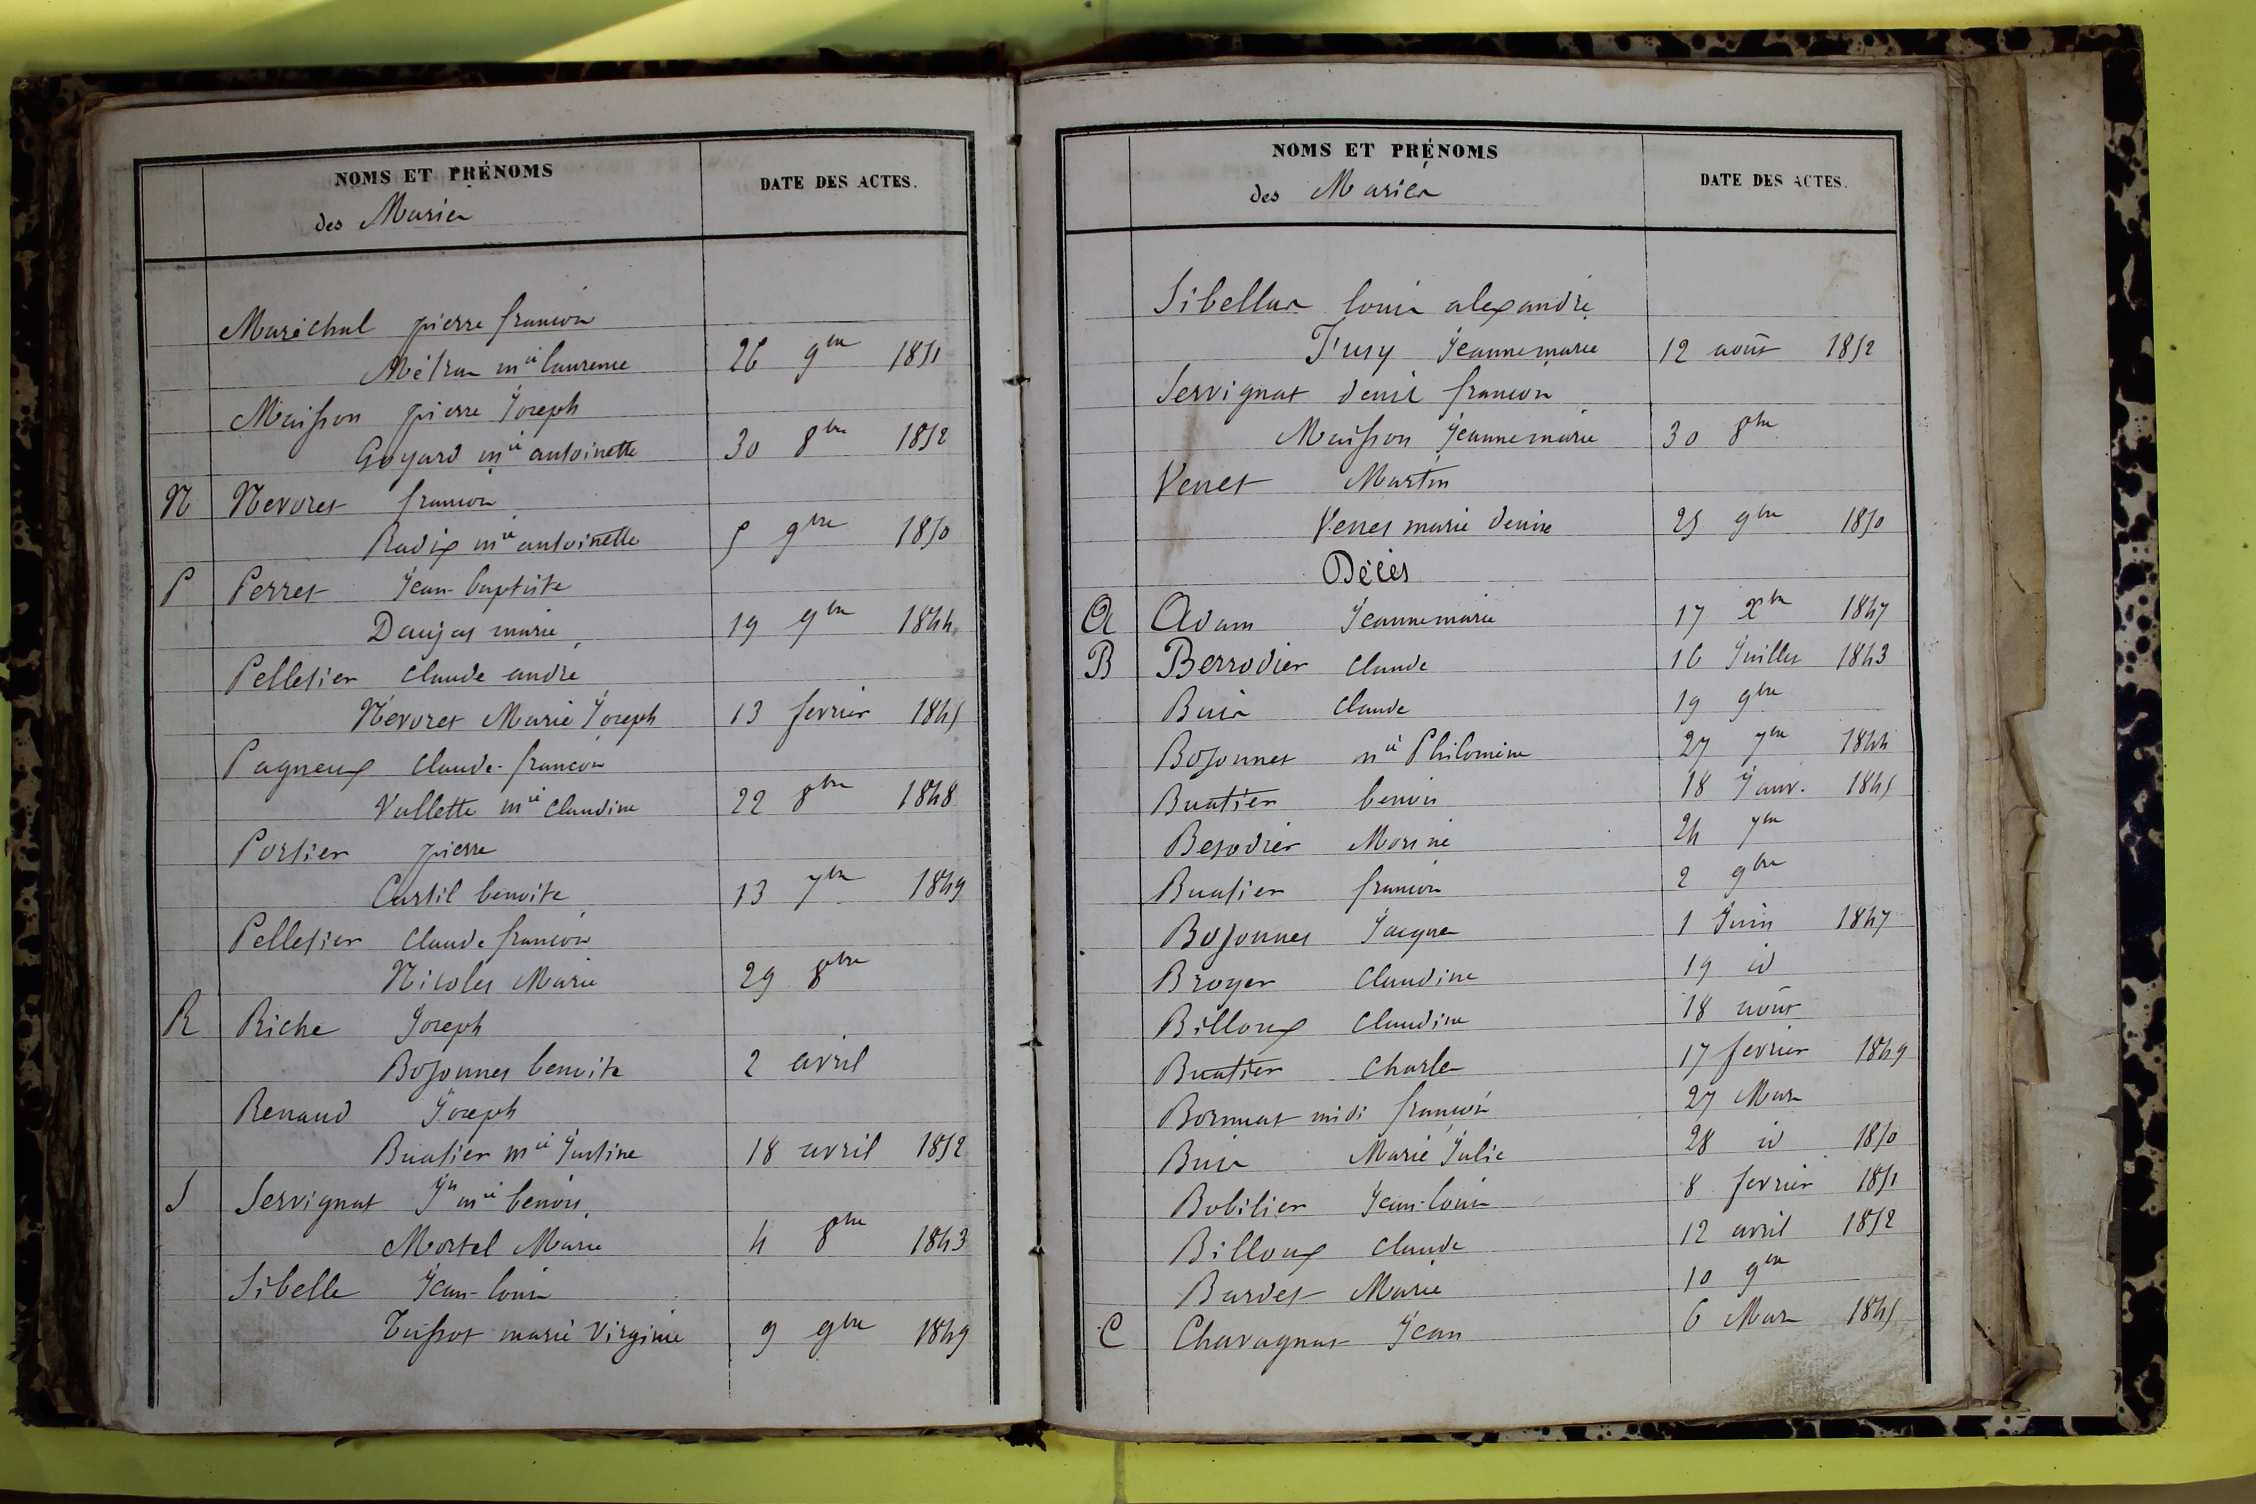 NOMS ET PRÉNOMS
DATE DES ACTES.
des Mariés
Maréchal pierre francois
Métras mie laurence 26 9bre 1851
Maisson pierre Joseph
Goyard mie antoinette 30 8bre 1852
N Nevoret francois
Radix mie antoinette 5 9bre 1850
P Perret Jean-baptiste
Danjas marie 19 9bre 1844
Pelletier Claude andré
Névoret Marie Joseph 13 fevrier 1845
Pagneux Claude-francois
Vallette mie Claudine 22 8bre 1848
Portier pierre
Curtil benoite 13 7bre 1849
Pelletier Claude francois
Nicolet Marie 29 8bre
R Riche Joseph
Bojonnet benoite 2 avril
Renaud Joseph
Buatier mie Justine 18 avril 1852
S Servignat Jn mie benoit
Mortel Marie 4 8bre 1843
Sibelle Jean-louis
Tussot marie Virginie 9 9bre 1849
NOMS ET PRÉNOMS
DATE DES ACTES.
des Mariés
Sibellas louis alexandre
Fusy Jeannemarie 12 août 1852
Servignat denis francois
Maisson Jeannemarie 30 8bre
Venet Martin
Venet marie denise 25 9bre 1850
Décès
A Adam Jeannemarie 17 Xbre 1847
B Berrodier Claude 16 Juillet 1843
Buis Claude 19 9bre
Bojonnet mie Philomène 27 7bre 1844
Buatier benoit 18 Janv. 1845
Berodier 24 7bre
Buatier francois 2 9bre
Bojonnet Jacques 1 Juin 1847
Broyer Claudine 19 id
Billoux Claudine 18 août
Buatier Charles 17 fevrier 1849
Bornuat midi francois 27 Mars
Buis Marie Julie 28 id 1850
Bobilier Jean-louis 8 fevrier 1851
Billoux Claude 12 avril 1852
Bardet Marie 10 9bre
C Chavagnat Jean 6 Mars 1845